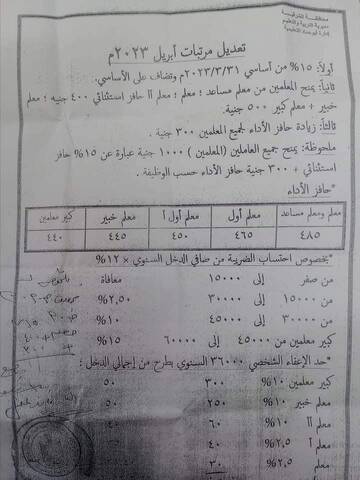 محافظة الشرقية
مديرية التربية والتعليم
تعديل مرتبات أبريل ٢٠٢٣م
أولاً: ١٥% من أساسي ٢٠٢٣/٣/٣١م وتضاف على الأساسي.
ثانياً: يمنح المعلمين من معلم مساعد ؛ معلم ؛ معلم أأ حافز استثنائي ٤٠٠ جنيه ؛ معلم
خبير + معلم كبير ٥٠٠ جنية.
ثالثاً: زيادة حافز الأداء لجميع المعلمين ٣٠٠ جنية.
ملحوظة: يمنح جميع العاملين (المعلمين) ١٠٠٠ جنية عبارة عن ١٥% حافز
إستثنائي + ٣٠٠ جنية حافز الأداء حسب الوظيفة.
*حافز الأداء
معلم ومعلم مساعد معلم أول معلم أول أ معلم خبير كبير معلمين
٤٨٥ ٤٦٥ ٤٥٠ ٤٤٥ ٤٤٠
*بخصوص احتساب الضريبة من صافي الدخل السنوي × ١٢%
من صفر إلى ١٥٠٠٠ معافاة
من ١٥٠٠٠ إلى ٣٠٠٠٠ ٢,٥٠%
من ٣٠٠٠٠ إلى ٤٥٠٠٠ ١٠%
كبير معلمين من ٤٥٠٠٠ إلى ٦٠٠٠٠ ١٥%
*حد الإعفاء الشخصي ٣٦٠٠٠ السنوي يطرح من إجمالي الدخل:
كبير معلمين ١٠% ٣٠٠ ٥٠
معلم خبير ١٠% ٢٥٠ ٥٠
معلم أأ ١٠% ٦٠ ٥٠
معلم أ ٢,٥% ٤٠
معلم ٢,٥% ٣٠